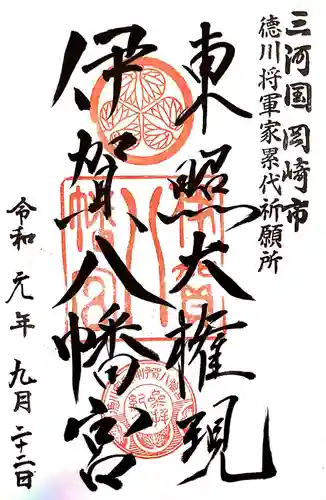 三河国岡崎市
徳川将軍家累代祈願所
東照大権現
伊賀八幡宮
令和元年九月二十二日